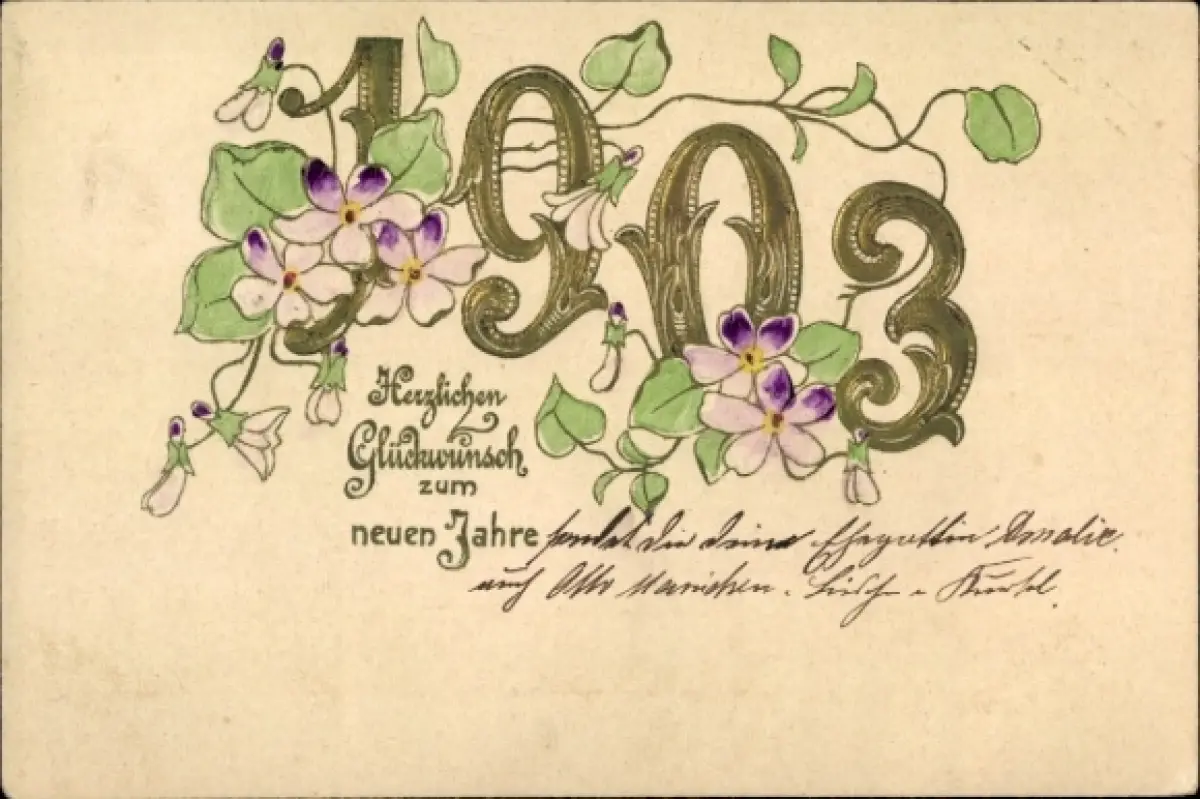 1903
Herzlichen
Glückwunsch
zum
neuen Jahre sendet dir deine Ehegattin Amalie.
auch Otto